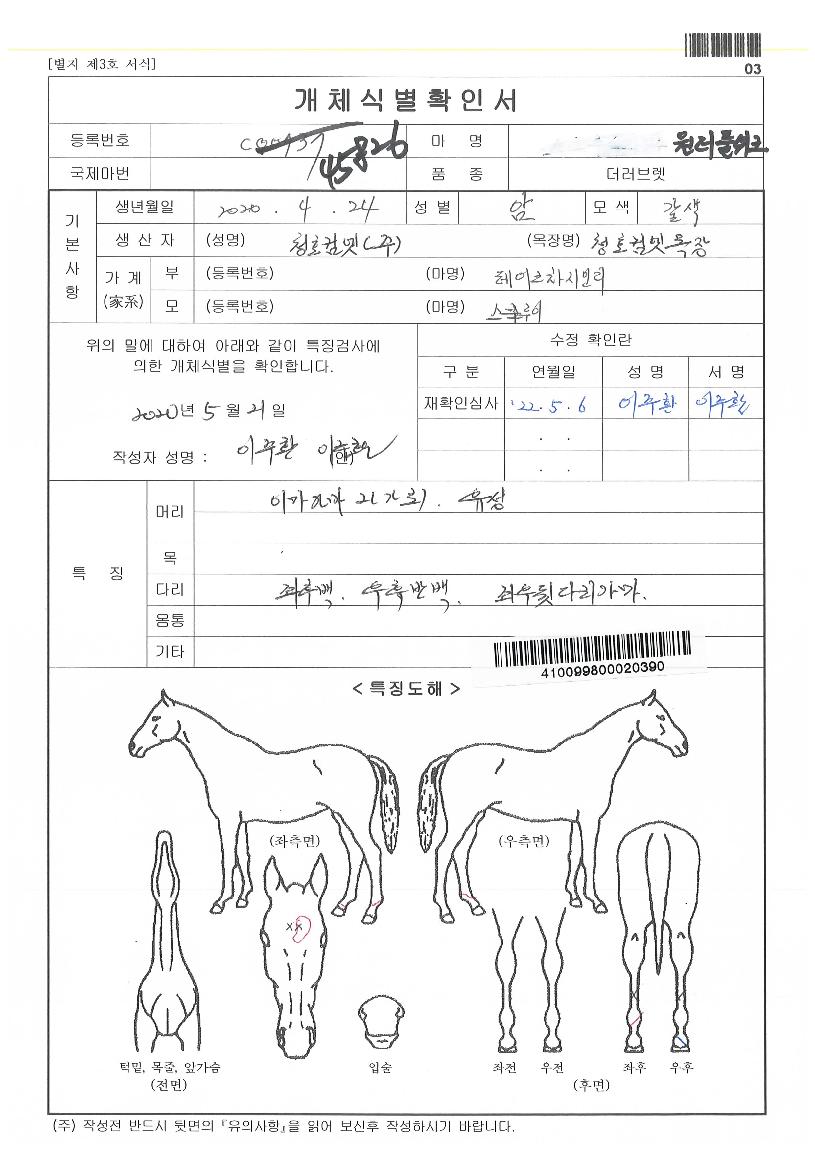 [별지 제3호 서식]
03
개체식별확인서
등록번호 45826 마 명 원더풀
국제마번 품 종 더러브렛
기본사항
생년월일 2020. 4. 24 성 별 암 모 색 갈색
생 산 자 (성명) 청호컴넷(주) (목장명) 청호컴넷목장
가 계 (家系) 부 (등록번호) (마명)
모 (등록번호) (마명)
위의 말에 대하여 아래와 같이 특징검사에
의한 개체식별을 확인합니다.
2020년 5월 21일
작성자 성명 : 이주환 (인)
수정 확인란
구 분 연월일 성 명 서 명
재확인심사 '22. 5. 6 이주환 이주환
. .
. .
특 징
머리 유성
목
다리 좌후백. 우후반백. 좌우뒷다리가마.
몸통
기타
410099800020390
< 특징도해 >
(좌측면) (우측면)
××
턱밑, 목줄, 앞가슴 입술 좌전 우전 좌후 우후
(전면) (후면)
(주) 작성전 반드시 뒷면의 『유의사항』을 읽어 보신후 작성하시기 바랍니다.